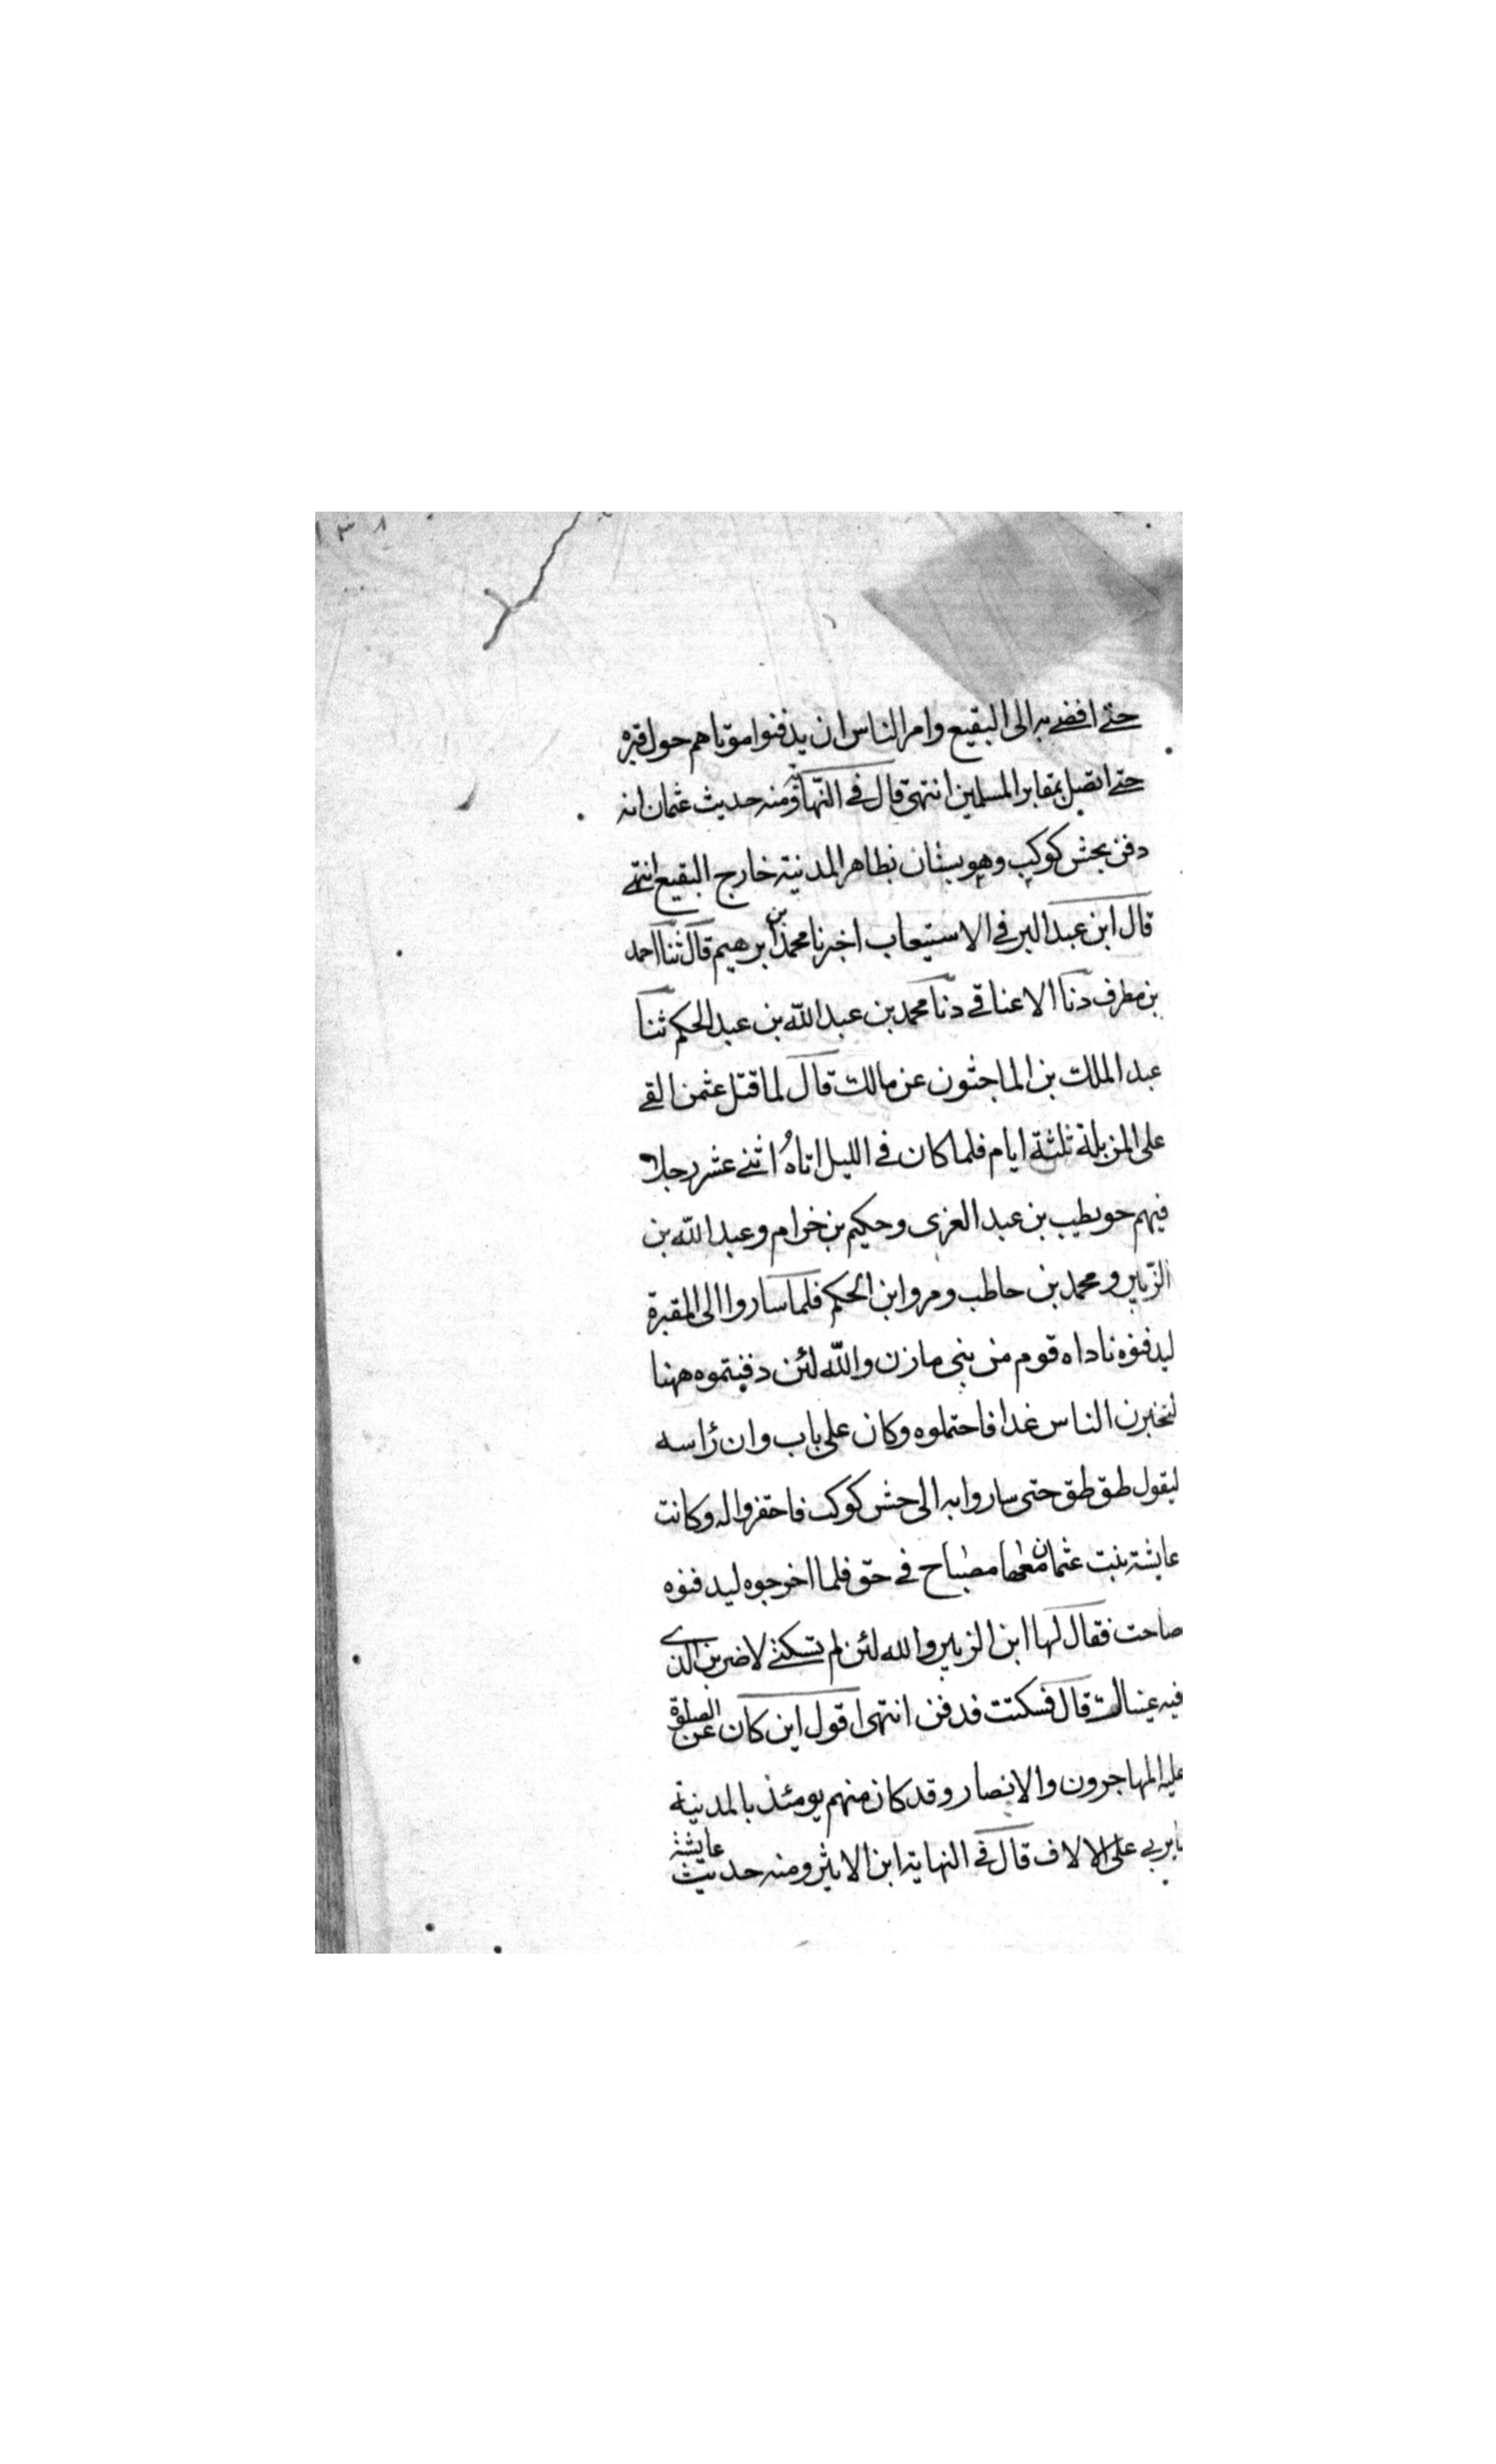 ١٣٨
حتى افضى به الى البقيع وامر الناس ان يدفنوا موتاهم حول قبره
حتى اتصل بمقابر المسلمين انتهى قال فى النهاية ومنه حديث عثمان انه
دفن بحش كوكب وهو بستان بظاهر المدينة خارج البقيع انتهى
قال ابن عبد البر فى الاستيعاب اخبرنا محمد بن ابرهيم قال ثنا احمد
بن مطرف دنا الاعناقى دنا محمد بن عبد الله بن عبد الحكم ثنا
عبد الملك بن الماجشون عن مالك قال لما قتل عثمن القى
على المزبلة ثلثة ايام فلما كان فى الليل اتاه اثنى عشر رجلا
فيهم حويطب بن عبد العزى وحكيم بن خزام وعبد الله بن
الزبير ومحمد بن حاطب ومروان بن الحكم فلما ساروا الى المقبرة
ليدفنوه ناداه قوم من بنى مازن والله لئن دفنتموه ههنا
لنخبرن الناس غدا فاحتملوه وكان على باب وان رأسه
ليقول طق طق حتى ساروا به الى حش كوكب فاحتفروا له وكانت
عايشة بنت عثمان معها مصباح فى حق فلما اخرجوه ليدفنوه
صاحت فقال لها ابن الزبير والله لئن لم تسكتى لاضربن الذى
فيه عيناك قال فسكتت فدفن انتهى اقول اين كان عن الصلوة
عليه المهاجرون والانصار وقد كان منهم يومئذ بالمدينة
ما يربى على الالاف قال فى النهاية ابن الاثير ومنه حديث عايشة